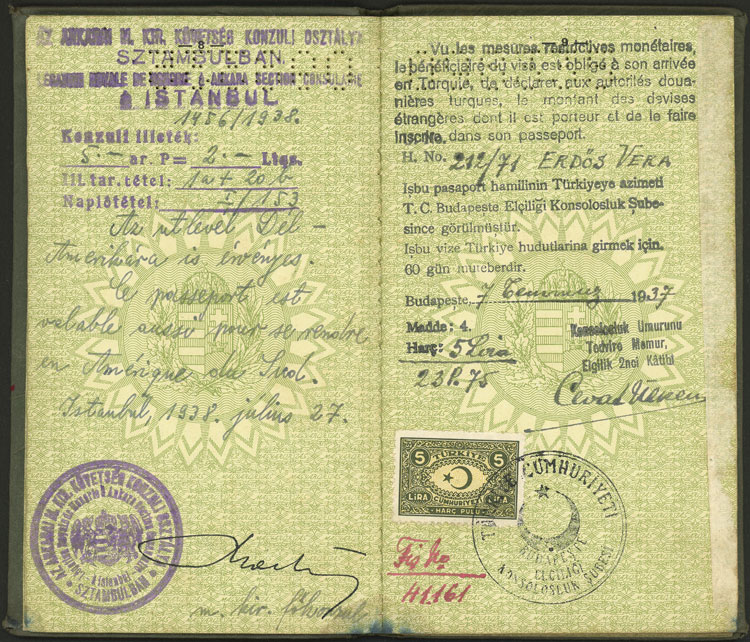 AZ ANKARAI M. KIR. KÖVETSÉG KONZULI OSZTÁLYA
SZTAMBULBAN
LEGATION ROYALE DE HONGRIE À ANKARA SECTION CONSULAIRE
À ISTANBUL
1486/1938.
Konzuli illeték:
5.- ar. P = 2.- Ltqs.
Ill. tar. tétel: 1a + 20 b
Naplótétel: I/153
Az útlevél Dél-
Amerikára is érvényes.
Ce passeport est
valable aussi pour se rendre
en Amérique du Sud.
Istanbul, 1938. július 27.
AZ ANKARAI M. KIR. KÖVETSÉG KONZULI OSZTÁLYA
SZTAMBULBAN
à Istanbul
m. kir. főkonzul
Vu les mesures restrictives monétaires,
le bénéficiaire du visa est obligé à son arrivée
en Turquie, de déclarer aux autorités doua-
nières turques, le montant des devises
étrangères dont il est porteur et de le faire
inscrire dans son passeport.
H. No. 212/71 ERDŐS VERA
Işbu pasaport hamilinin Türkiyeye azimeti
T. C. Budapeşte Elçiliği Konsolosluk Şube-
since görülmüştür.
Işbu vize Türkiye hudutlarina girmek için
60 gün muteberdir.
Budapeşte, 7 Temmuz 1937
Madde: 4.
Harç: 5 Lira
23 P. 75
Konsolosluk Umurunu
Tedvire Memur,
Elçilik 2nci Kâtibi
5 TÜRKİYE 5
LİRA CUMHURİYETİ LİRA
HARÇ PULU
TÜRKİYE CUMHURİYETİ
BUDAPEŞTE
ELÇİLİĞİ
KONSOLOSLUK ŞUBESİ
Fiş No
41161